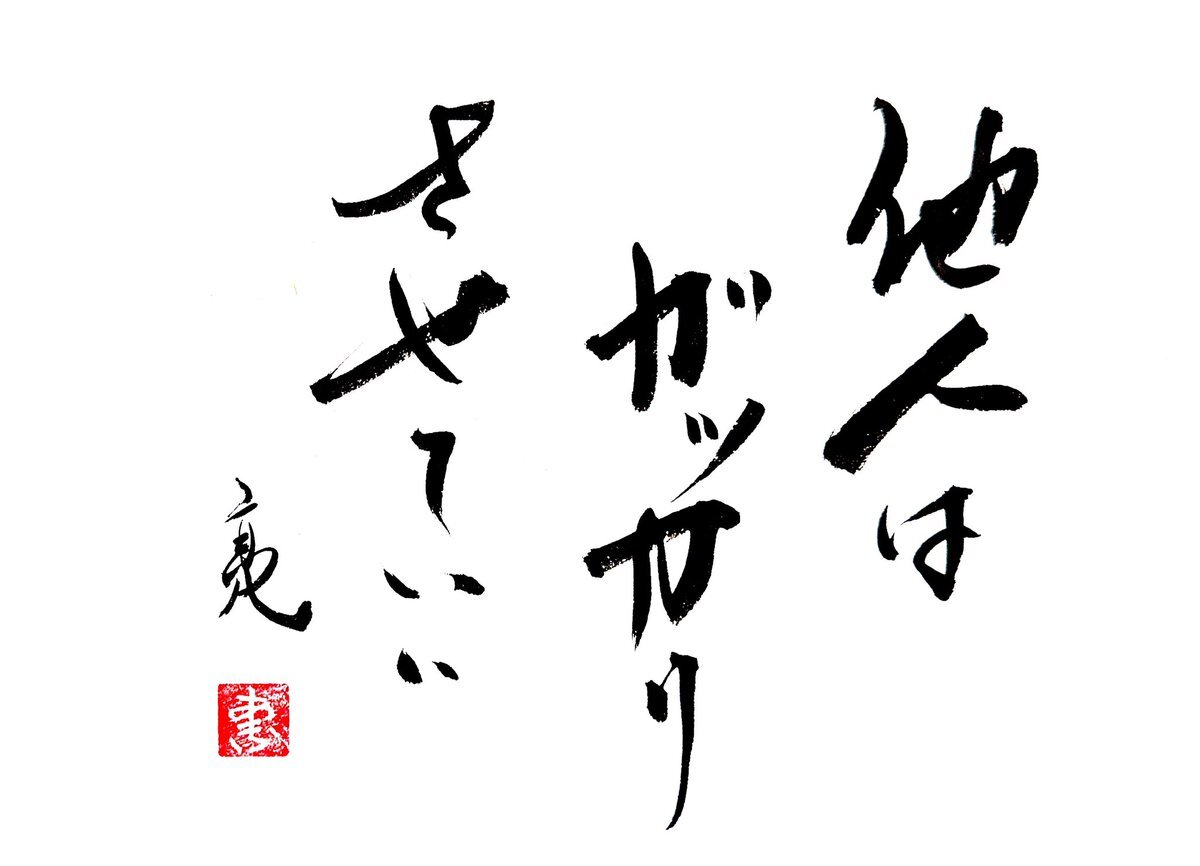 他人は
ガッカリ
させていい
亮